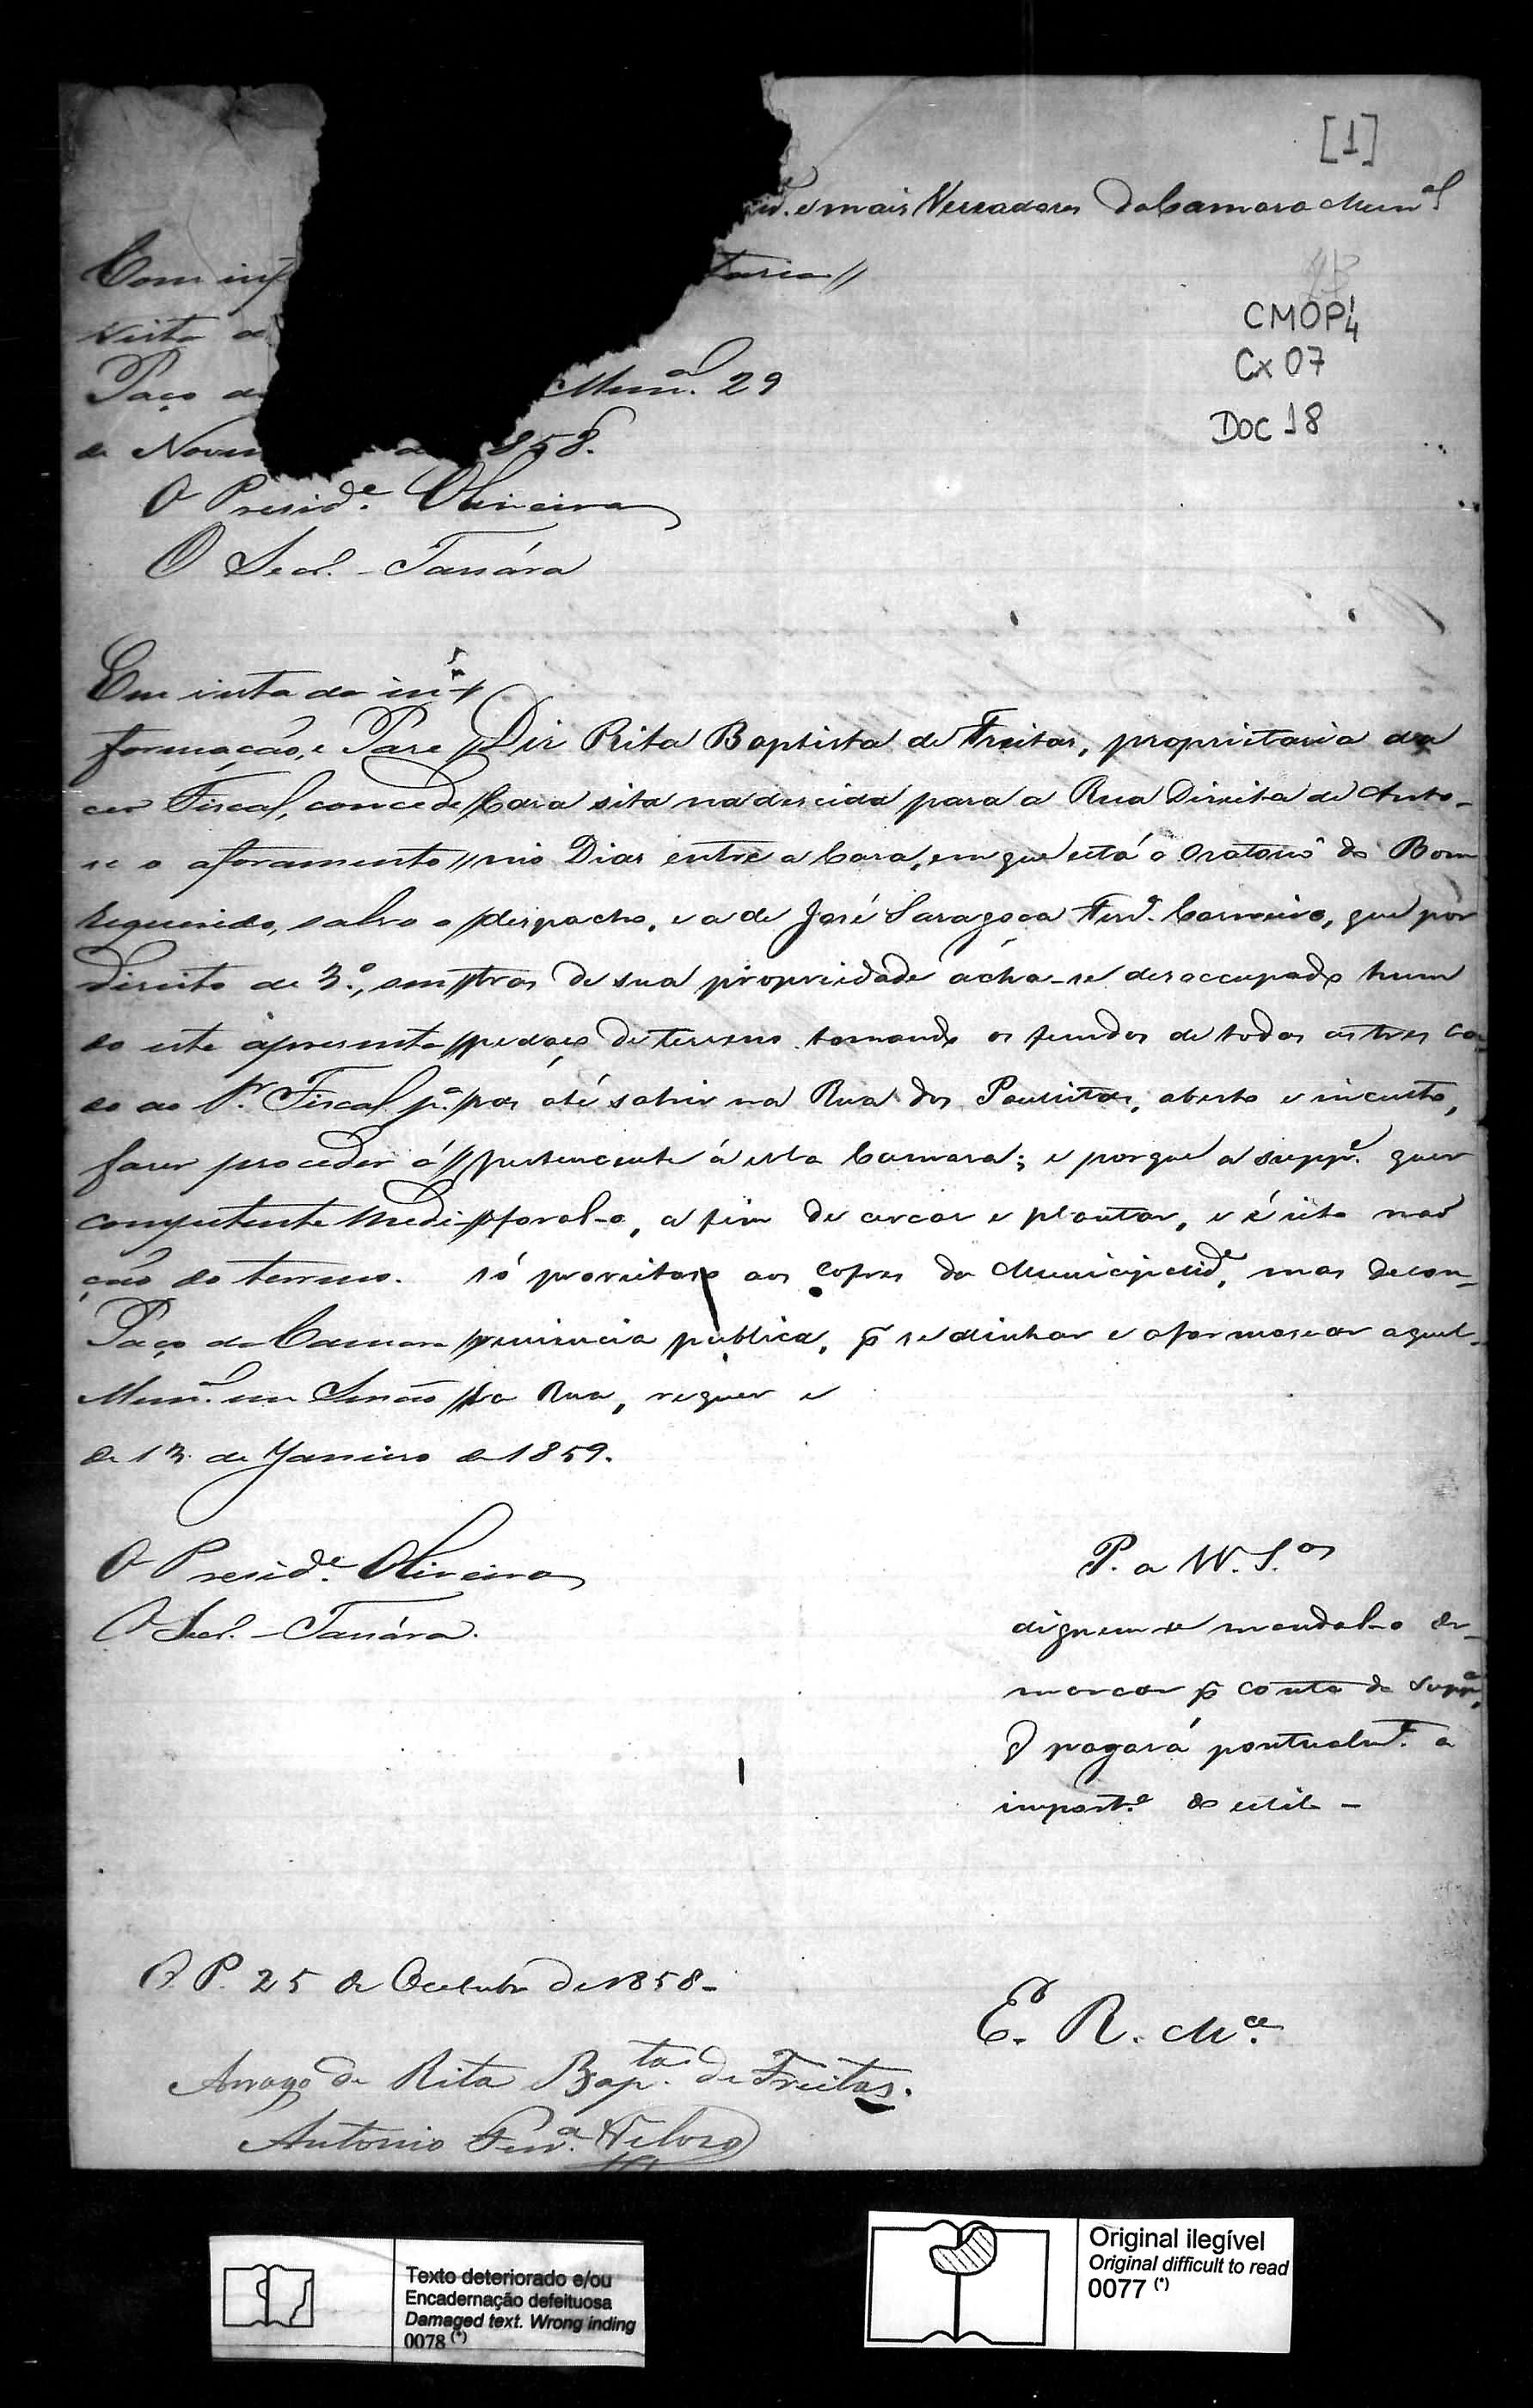 [1]
e mais Vereadores da Camara Mun.al
CMOP 1/4
Cx 07
Doc 18
Com inf
Vista a
Paço da Mun.al 29
de Novem 858.
O Presid.e Oliveira
O Secr.
Em vista da in-
formação, e Pare
cer Fiscal, concede
se o aforamento
requerido, salvo o
direito de 3.º, sen
do este apresenta
do ao Sr. Fiscal p.a
fazer proceder á
competente Medi-
ção do terreno.
Paço da Camara
Mun.al em Sessão
de 13 de Janeiro de 1859.
O Presid.e Oliveira
O Secr.
Diz Rita Baptista de Freitas, proprietaria da
Casa sita na descida para a Rua Direita de Anto-
nio Dias entre a Casa, em que está o Oratorio do Bom
despacho, e a de José Saragoça Ferr.a Carneiro, que por
traz de sua propriedade acha-se desoccupado hum
pedaço de terreno tomando os fundos de todas as tres ca-
zas até sahir na Rua dos Paulistas, aberto e inculto,
pertencente á esta Camara; e porque a supp.e quer
aforal-o, a fim de cercar e plantar, e é isto não
só proveitoso aos Cofres da Municipalid.e, mas de con-
veniencia publica, p. se alinhar e aformosear aquel-
la Rua, requer e
P. a V.V. S.as
dignem-se mandal-o de-
marcar p. conta da supp.e,
q pagará pontualm.e a
import.a do estilo -
O. P. 25 de Outubro de 1858-
E. R. M.ce
Arrogo de Rita Bap.ta de Freitas.
Antonio Ferr.a Velozo
Texto deteriorado e/ou
Encadernação defeituosa
Damaged text. Wrong inding
0078 (*)
Original ilegível
Original difficult to read
0077 (*)